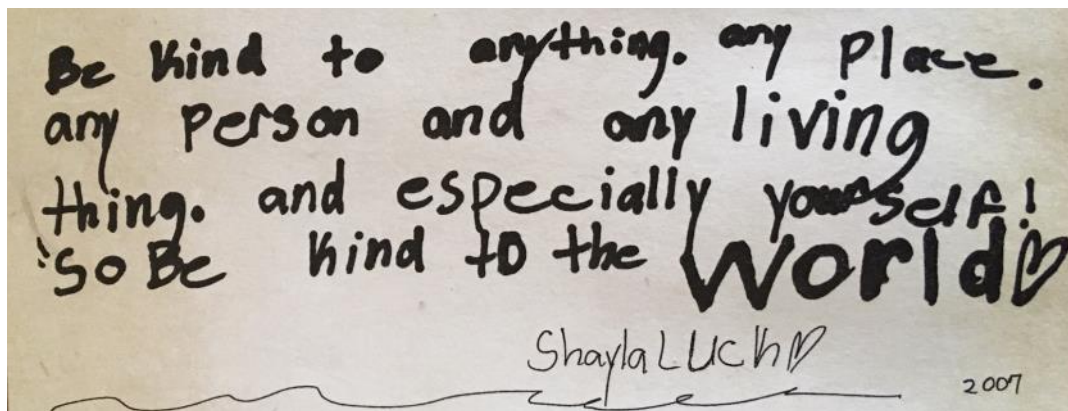 Be kind to anything. any place.
any person and any living
thing. and especially yourself!
So Be kind to the World♡
Shayla LUCK♡
2007